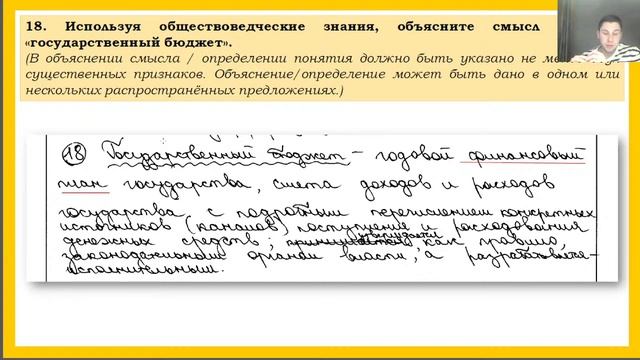 18. Используя обществоведческие знания, объясните смысл
«государственный бюджет».
(В объяснении смысла / определении понятия должно быть указано не
существенных признаков. Объяснение/определение может быть дано в одном или
нескольких распространённых предложениях.)
18 Государственный бюджет – годовой финансовый
план государства, смета доходов и расходов
государства с подробным перечислением конкретных
источников (каналов) поступления и расходования
денежных средств; утверждается как правило,
законодательными органами власти, а разрабатывается –
исполнительными.